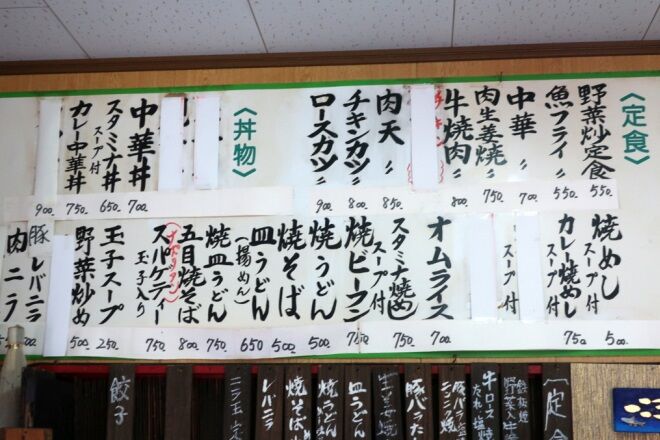 〈定食〉
野菜炒定食 550.
魚フライ〃 550.
中華〃 700.
肉生姜焼〃 750.
牛焼肉〃 800.
肉天〃 850.
チキンカツ〃 800.
ロースカツ〃 900.
〈丼物〉
中華丼 700.
スタミナ丼 スープ付 650.
カレー中華丼 750.
900.
焼めし スープ付 500.
カレー焼めし スープ付 750
スープ付
オムライス 700.
スタミナ焼めし スープ付 750.
焼ビーフン 750
焼うどん 500
焼そば 500.
皿うどん 650
(揚めん)
焼皿うどん 750
五目焼そば 800.
スパゲティー 玉子入り 750.
玉子スープ 250.
野菜炒め 500.
豚レバニラ
肉ニラ
定
牛ロース
焼うどん
焼そば
皿うどん
レバニラ
ニラ玉
餃子